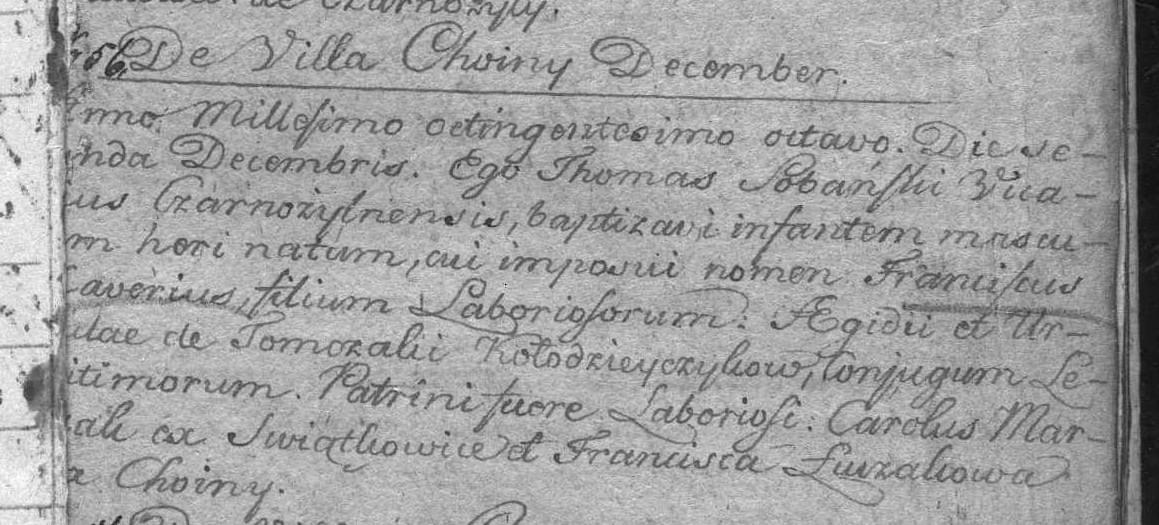 de Czarnożyły.
56. De Villa Choiny December.
Anno Millesimo octingentesimo octavo. Die se-
unda Decembris. Ego Thomas Sobański Vica-
ius Czarnożylnensis, baptizavi infantem mascu-
m heri natum, cui imposui nomen Franciscus
Xaverius, filium Laboriosorum: Ægidii et Ur-
ulae de Tomczaki Kołodzieyczykow, Conjugum Le-
itimorum. Patrini fuere Laboriosi: Carolus Mar-
ak ex Swiątkowice et Francisca
Choiny.